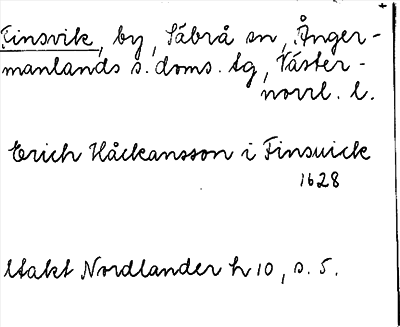 Finsvik, by, Säbrå sn, Ånger-
manlands s. doms. tg, Väster-
norrl. l.
Erich Håckansson i Finsuick
1628
Utakt Nordlander h 10, s. 5.